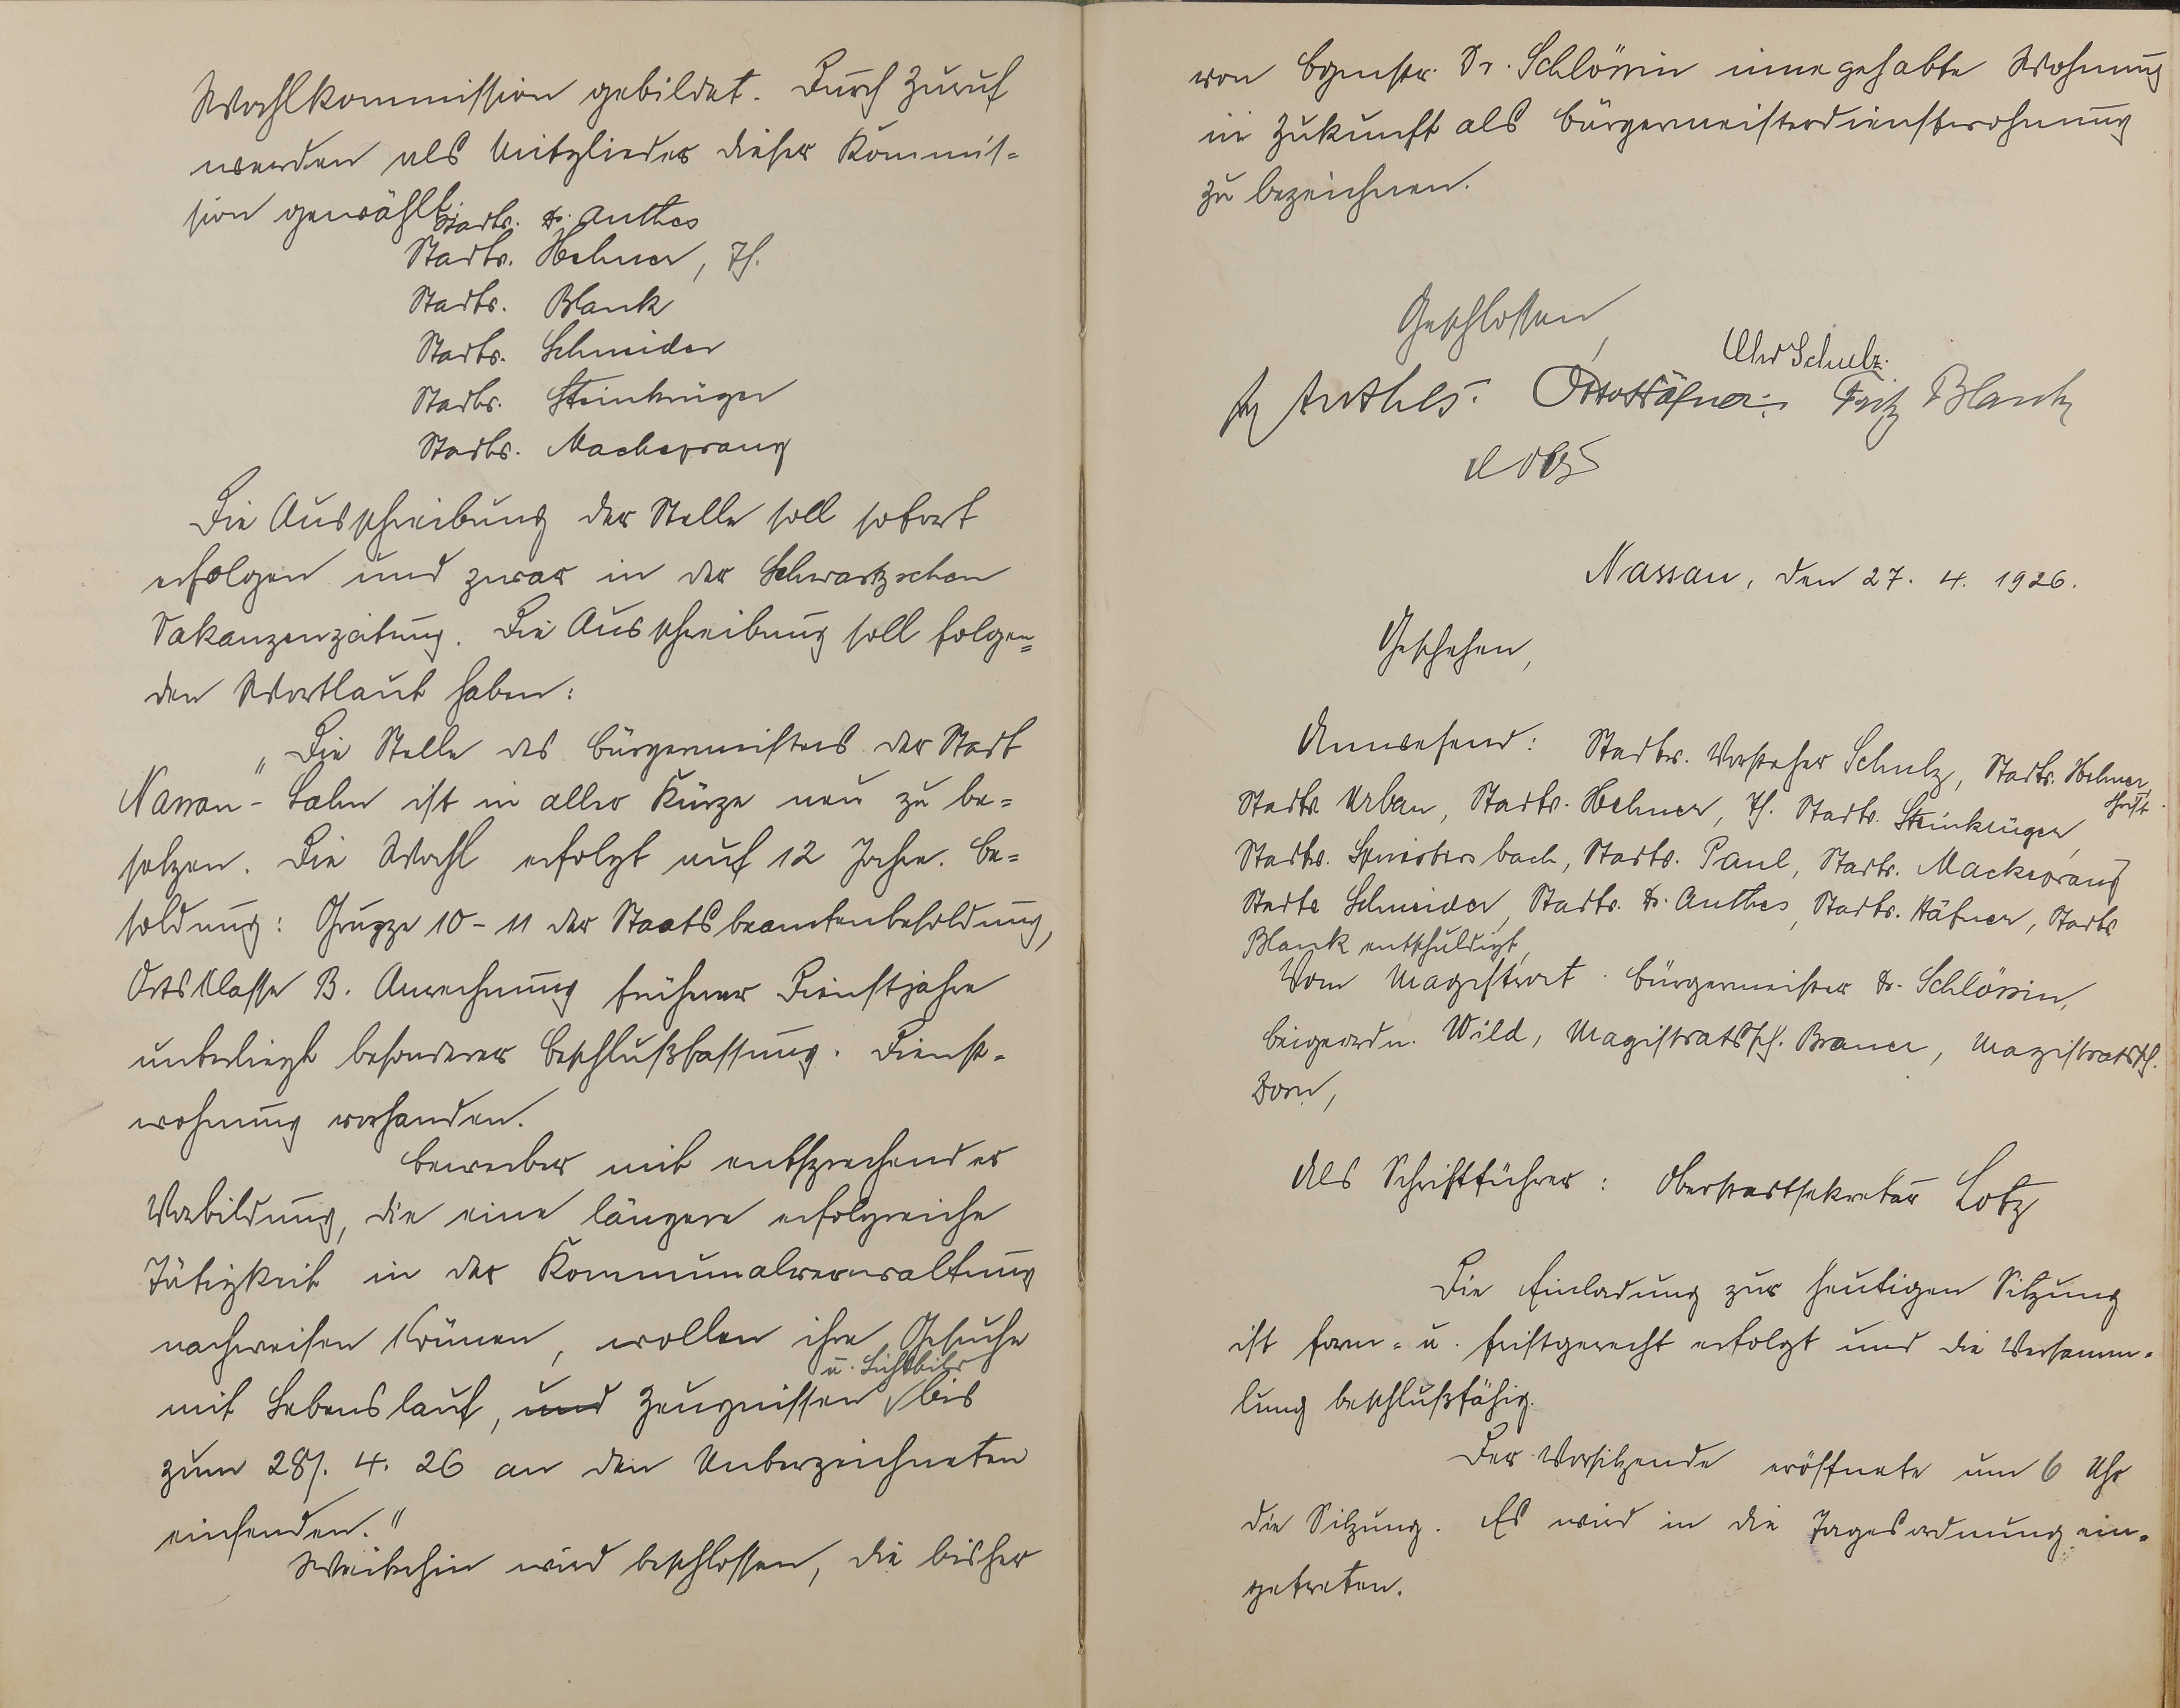 Wahlkommission gebildet. Durch Zuruf
werden als Mitglieder dieser Kommis-
sion gewählt:
Stadtv. Dr. Anthes
Stadtv. Hehner, Th.
Stadtv. Blank
Stadtv. Schneider
Stadtv. Steinkrüger
Stadtv. Mackeprang
Die Ausschreibung der Stelle soll sofort
erfolgen und zwar in der Schwartzschen
Vakanzenzeitung. Die Ausschreibung soll folgen=
den Wortlaut haben:
„Die Stelle des Bürgermeisters der Stadt
Nassau-Lahn ist in aller Kürze neu zu be=
setzen. Die Wahl erfolgt auf 12 Jahre. Be=
soldung: Gruppe 10-11 der Staatsbeamtenbesoldung,
Ortsklasse B. Anrechnung früherer Dienstjahre
unterliegt besonderer Beschlußfassung. Dienst-
wohnung vorhanden.
Bewerber mit entsprechender
Vorbildung, die eine längere erfolgreiche
Tätigkeit in der Kommunalverwaltung
nachweisen können, wollen ihre Gesuche
u. Lichtbild
mit Lebenslauf, und Zeugnissen bis
zum 28. 4. 26 an den Unterzeichneten
einsenden."
Weiterhin wird beschlossen, die bisher
von Bgmstr. Dr. Schlössin innegehabte Wohnung
in Zukunft als Bürgermeisterdienstwohnung
zu bezeichnen.
Geschlossen,
Schulz.
Anthes. Otto Häfner. Fritz Blank
Nassau, den 27. 4. 1926.
Geschehen,
Anwesend: Stadtv. Vorsteher Schulz, Stadtv. Hehner,
Stadtv. Urban, Stadtv. Hehner, Th. Stadtv. Steinkrüger,
Stadtv. Paul, Stadtv. Mackeprang
Stadtv. Schneider, Stadtv. Dr. Anthes, Stadtv. Häfner, Stadtv.
Blank entschuldigt,
Vom Magistrat. Bürgermeister Dr. Schlössin,
Beigeordn. Wild, Magistratssch. Braner, Magistratssch.
Born,
Als Schriftführer: Oberstadtsekretär Lotz
Die Einladung zur heutigen Sitzung
ist form- u. fristgerecht erfolgt und die Versamm-
lung beschlußfähig.
Der Vorsitzende eröffnete um 6 Uhr
die Sitzung. Es wird in die Tagesordnung ein-
getreten.